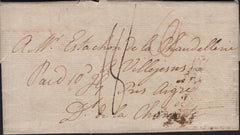 A Mr. Estachon de la Chaudellerie
Paid 10d Villejesus
Près Aigre
Dt. de la Charente